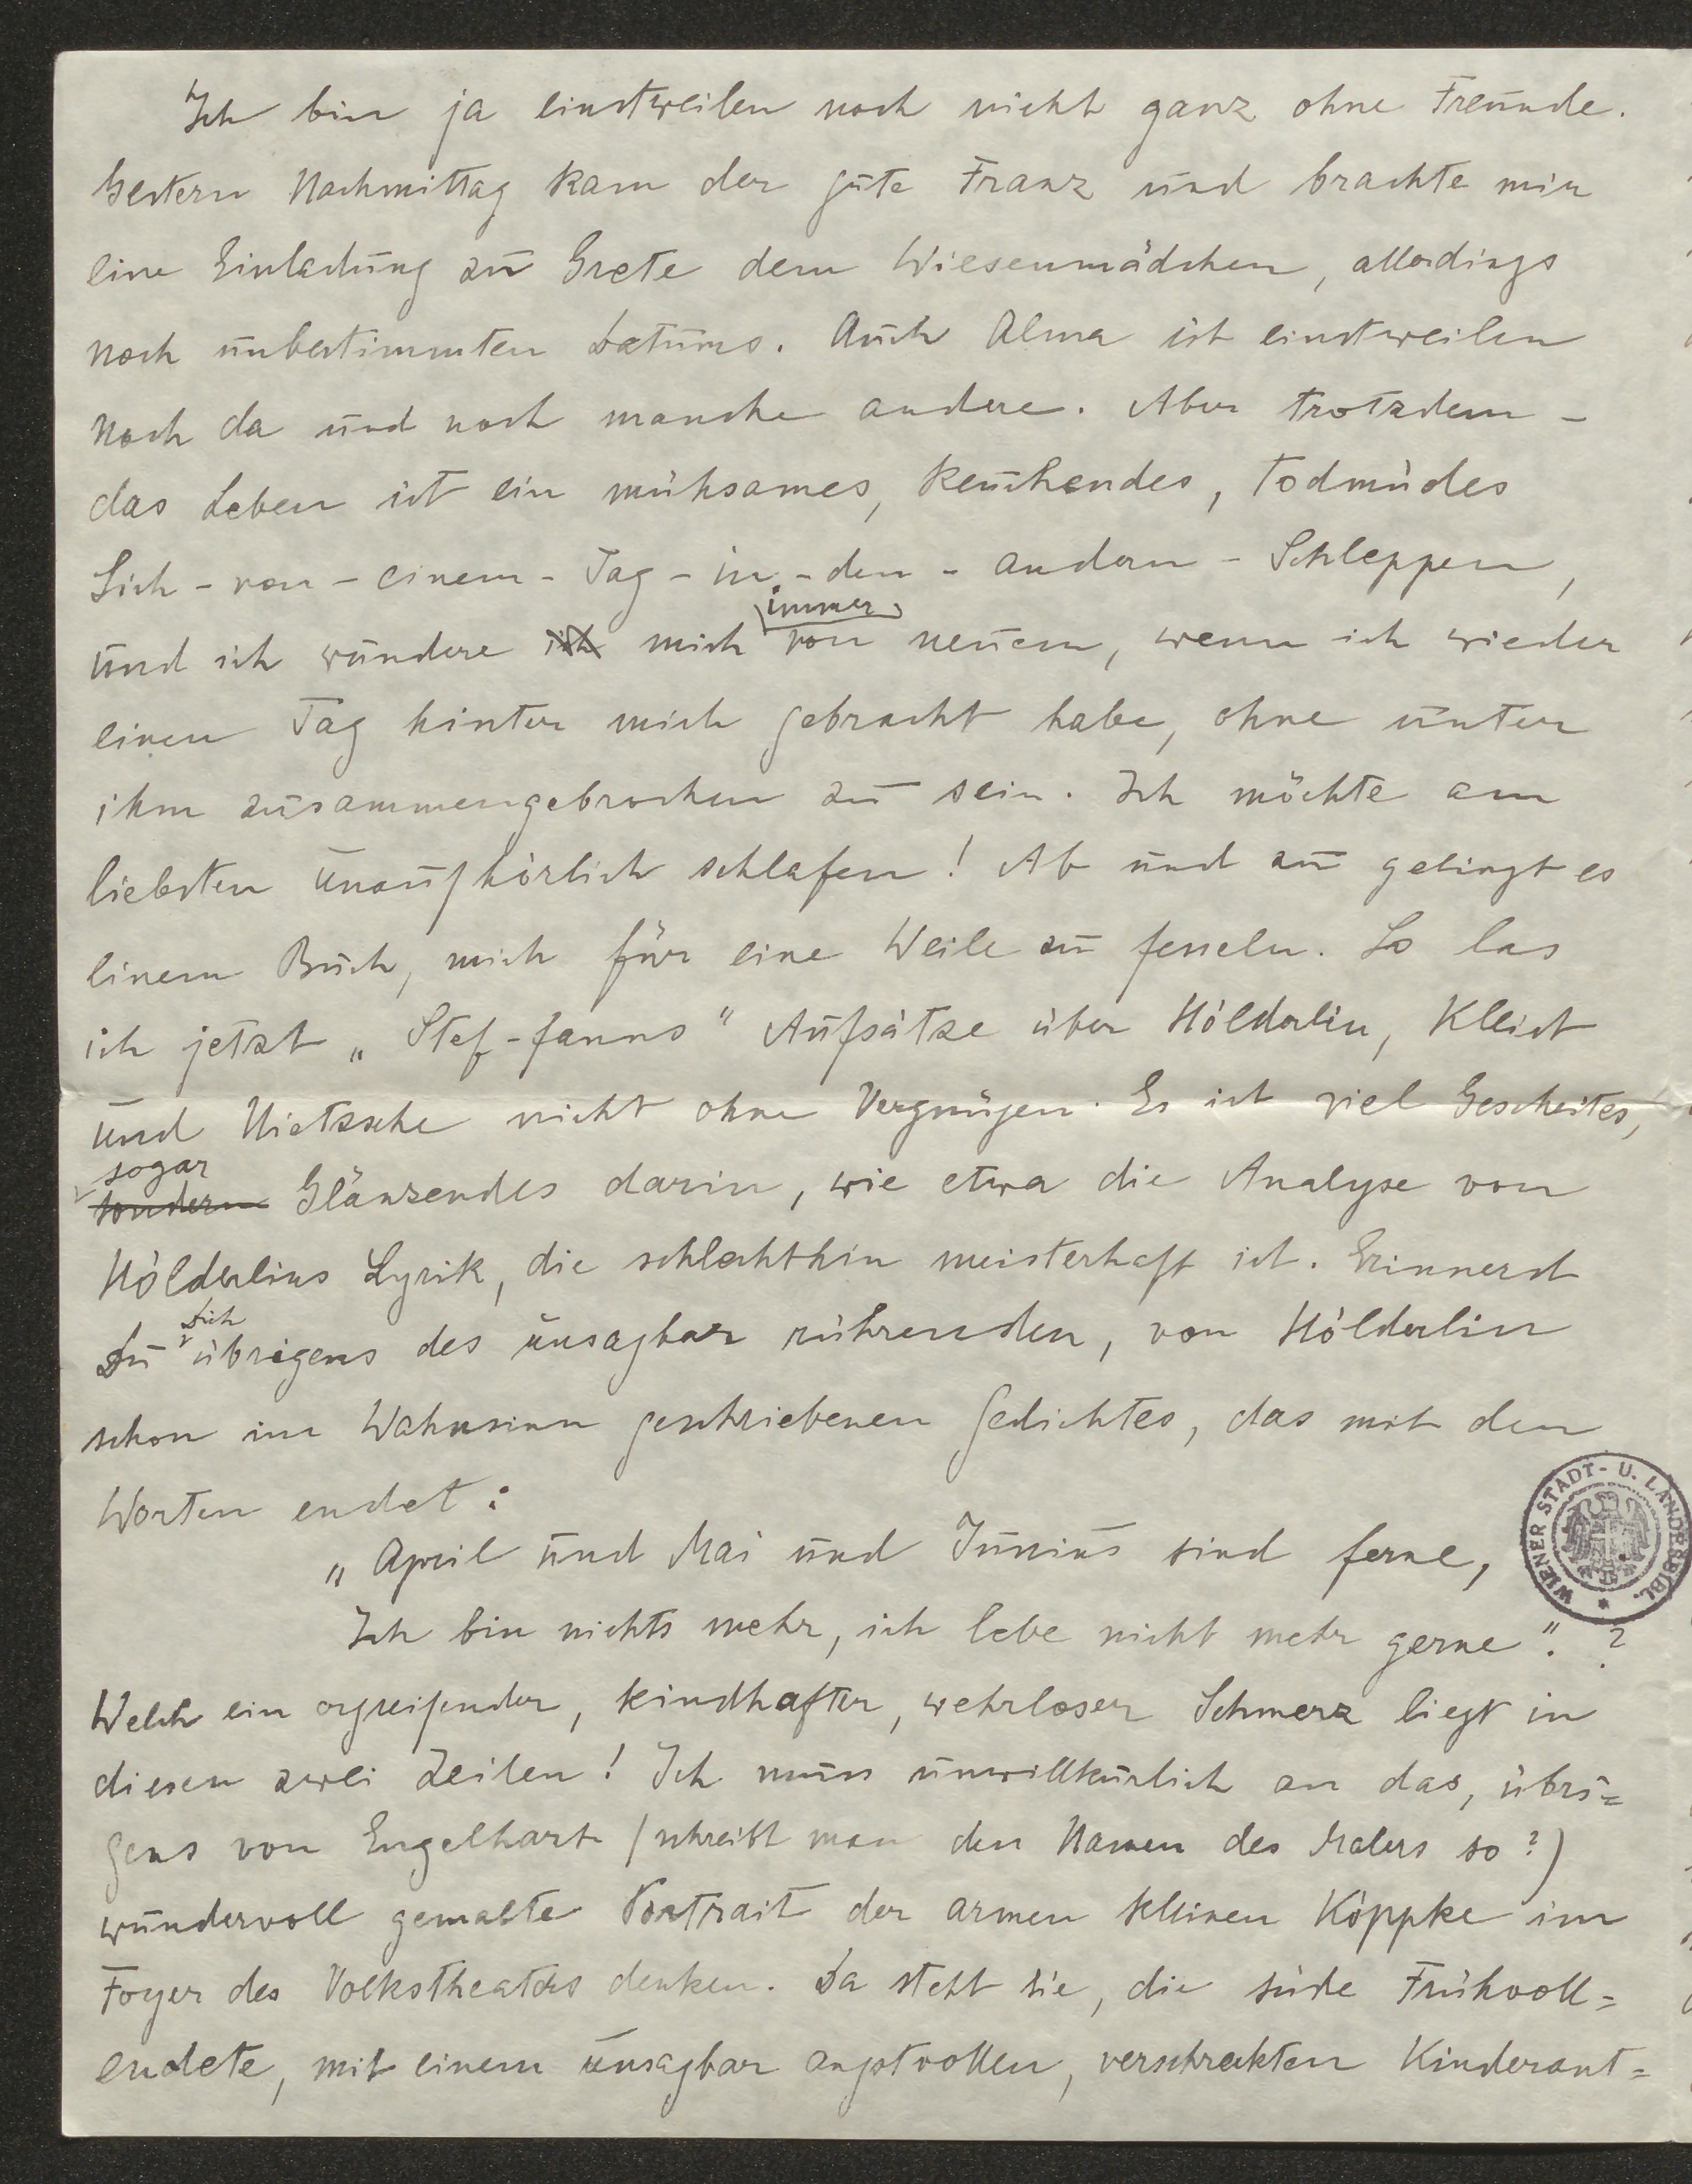 Ich bin ja einstweilen noch nicht ganz ohne Freunde.
Gestern Nachmittag kam der gute Franz und brachte mir
eine Einladung zu Grete dem Wiesenmädchen, allerdings
noch unbestimmten Datums. Auch Alma ist einstweilen
noch da und noch manche andere. Aber trotzdem –
das Leben ist ein mühsames, keuchendes, todmüdes
Sich-von-einem-Tag-in-den-andern-Schleppen,
immer
und ich wundere ich mich von neuem, wenn ich wieder
einen Tag hinter mich gebracht habe, ohne unter
ihm zusammengebrochen zu sein. Ich möchte am
liebsten unaufhörlich schlafen! Ab und zu gelingt es
einem Buch, mich für eine Weile zu fesseln. So las
ich jetzt „Stef-fanns" Aufsätze über Hölderlin, Kleist
und Nietzsche nicht ohne Vergnügen. Es ist viel Gescheites,
sogar
sondern Glänzendes darin, wie etwa die Analyse von
Hölderlins Lyrik, die schlechthin meisterhaft ist. Erinnerst
Dich
Du übrigens des unsagbar rührenden, von Hölderlin
schon im Wahnsinn geschriebenen Gedichtes, das mit den
Worten endet:
„April und Mai und Junius sind ferne,
Ich bin nichts mehr, ich lebe nicht mehr gerne". ?
WIENER STADT- U. LANDESBIBL.
Welch ein ergreifender, kindhafter, wehrloser Schmerz liegt in
diesen zwei Zeilen! Ich muss unwillkürlich an das, übri=
gens von Engelhart (schreibt man den Namen des Malers so?)
wundervoll gemalte Portrait der armen kleinen Köppke im
Foyer des Volkstheaters denken. Da steht sie, die süße Frühvoll=
endete, mit einem unsagbar angstvollen, verschreckten Kinderant=